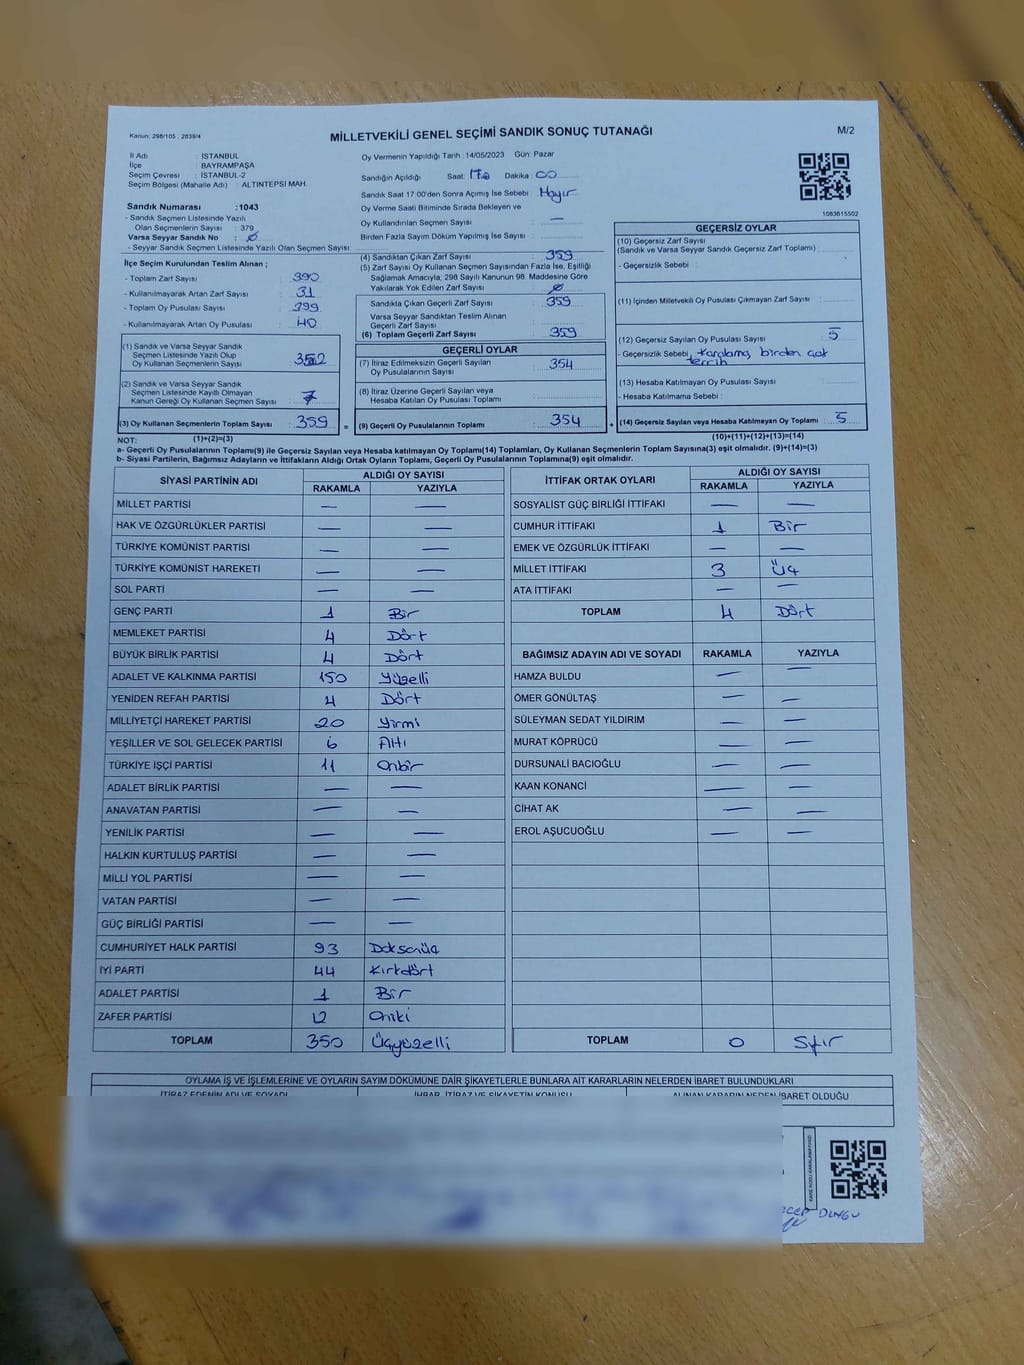 Kanun: 298/105 , 2839/4
MİLLETVEKİLİ GENEL SEÇİMİ SANDIK SONUÇ TUTANAĞI
M/2
İl Adı : İSTANBUL
İlçe : BAYRAMPAŞA
Seçim Çevresi : İSTANBUL-2
Seçim Bölgesi (Mahalle Adı) : ALTINTEPSİ MAH.
Sandık Numarası : 1043
- Sandık Seçmen Listesinde Yazılı
Olan Seçmenlerin Sayısı : 379
Varsa Seyyar Sandık No : 0
- Seyyar Sandık Seçmen Listesinde Yazılı Olan Seçmen Sayısı:
Oy Vermenin Yapıldığı Tarih : 14/05/2023 Gün: Pazar
Sandığın Açıldığı Saat: 17.0 Dakika : 00
Sandık Saat 17:00'den Sonra Açımış İse Sebebi : Hayır
Oy Verme Saati Bitiminde Sırada Bekleyen ve
Oy Kullandırılan Seçmen Sayısı : —
Birden Fazla Sayım Döküm Yapılmış İse Sayısı :
1083615502
İlçe Seçim Kurulundan Teslim Alınan ;
- Toplam Zarf Sayısı : 390
- Kullanılmayarak Artan Zarf Sayısı : 31
- Toplam Oy Pusulası Sayısı : 399
- Kullanılmayarak Artan Oy Pusulası : 40
(1) Sandık ve Varsa Seyyar Sandık
Seçmen Listesinde Yazılı Olup
Oy Kullanan Seçmenlerin Sayısı : 352
(2) Sandık ve Varsa Seyyar Sandık
Seçmen Listesinde Kayıtlı Olmayan
Kanun Gereği Oy Kullanan Seçmen Sayısı : 7
(3) Oy Kullanan Seçmenlerin Toplam Sayısı : 359 =
(4) Sandıktan Çıkan Zarf Sayısı : 359
(5) Zarf Sayısı Oy Kullanan Seçmen Sayısından Fazla İse, Eşitliği
Sağlamak Amacıyla; 298 Sayılı Kanunun 98. Maddesine Göre
Yakılarak Yok Edilen Zarf Sayısı : 0
Sandıkla Çıkan Geçerli Zarf Sayısı : 359
Varsa Seyyar Sandıktan Teslim Alınan
Geçerli Zarf Sayısı :
(6) Toplam Geçerli Zarf Sayısı : 359
GEÇERLİ OYLAR
(7) İtiraz Edilmeksizin Geçerli Sayılan
Oy Pusulalarının Sayısı : 354
(8) İtiraz Üzerine Geçerli Sayılan veya
Hesaba Katılan Oy Pusulası Toplamı :
(9) Geçerli Oy Pusulalarının Toplamı : 354 +
GEÇERSİZ OYLAR
(10) Geçersiz Zarf Sayısı
(Sandık ve Varsa Seyyar Sandık Geçersiz Zarf Toplamı) :
- Geçersizlik Sebebi :
(11) İçinden Milletvekili Oy Pusulası Çıkmayan Zarf Sayısı :
(12) Geçersiz Sayılan Oy Pusulası Sayısı : 5
- Geçersizlik Sebebi : Karalama, birden çok
tercih
(13) Hesaba Katılmayan Oy Pusulası Sayısı :
- Hesaba Katılmama Sebebi :
(14) Geçersiz Sayılan veya Hesaba Katılmayan Oy Toplamı : 5
NOT: (1)+(2)=(3) (10)+(11)+(12)+(13)=(14)
a- Geçerli Oy Pusulalarının Toplamı(9) ile Geçersiz Sayılan veya Hesaba katılmayan Oy Toplamı(14) Toplamları, Oy Kullanan Seçmenlerin Toplam Sayısına(3) eşit olmalıdır. (9)+(14)=(3)
b- Siyasi Partilerin, Bağımsız Adayların ve İttifakların Aldığı Ortak Oyların Toplamı, Geçerli Oy Pusulalarının Toplamına(9) eşit olmalıdır.
SİYASİ PARTİNİN ADI ALDIĞI OY SAYISI
RAKAMLA YAZIYLA
MİLLET PARTİSİ — —
HAK VE ÖZGÜRLÜKLER PARTİSİ — —
TÜRKİYE KOMÜNİST PARTİSİ — —
TÜRKİYE KOMÜNİST HAREKETİ — —
SOL PARTİ — —
GENÇ PARTİ 1 Bir
MEMLEKET PARTİSİ 4 Dört
BÜYÜK BİRLİK PARTİSİ 4 Dört
ADALET VE KALKINMA PARTİSİ 150 Yüzelli
YENİDEN REFAH PARTİSİ 4 Dört
MİLLİYETÇİ HAREKET PARTİSİ 20 Yirmi
YEŞİLLER VE SOL GELECEK PARTİSİ 6 Altı
TÜRKİYE İŞÇİ PARTİSİ 11 Onbir
ADALET BİRLİK PARTİSİ — —
ANAVATAN PARTİSİ — —
YENİLİK PARTİSİ — —
HALKIN KURTULUŞ PARTİSİ — —
MİLLİ YOL PARTİSİ — —
VATAN PARTİSİ — —
GÜÇ BİRLİĞİ PARTİSİ — —
CUMHURİYET HALK PARTİSİ 93 Doksanüç
İYİ PARTİ 44 Kırkdört
ADALET PARTİSİ 1 Bir
ZAFER PARTİSİ 12 Oniki
TOPLAM 350 Üçyüzelli
İTTİFAK ORTAK OYLARI ALDIĞI OY SAYISI
RAKAMLA YAZIYLA
SOSYALİST GÜÇ BİRLİĞİ İTTİFAKI — —
CUMHUR İTTİFAKI 1 Bir
EMEK VE ÖZGÜRLÜK İTTİFAKI — —
MİLLET İTTİFAKI 3 Üç
ATA İTTİFAKI — —
TOPLAM 4 Dört
BAĞIMSIZ ADAYIN ADI VE SOYADI RAKAMLA YAZIYLA
HAMZA BULDU — —
ÖMER GÖNÜLTAŞ — —
SÜLEYMAN SEDAT YILDIRIM — —
MURAT KÖPRÜCÜ — —
DURSUNALİ BACIOĞLU — —
KAAN KONANCİ — —
CİHAT AK — —
EROL AŞUCUOĞLU — —
TOPLAM 0 Sıfır
OYLAMA İŞ VE İŞLEMLERİNE VE OYLARIN SAYIM DÖKÜMÜNE DAİR ŞİKAYETLERLE BUNLARA AİT KARARLARIN NELERDEN İBARET BULUNDUKLARI
İTİRAZ EDENİN ADI VE SOYADI İHBAR, İTİRAZ VE ŞİKAYETİN KONUSU ALINAN KARARIN NEDEN İBARET OLDUĞU